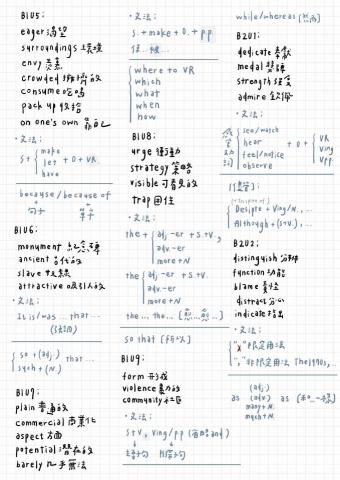 B1U5:
eager 渴望
surroundings 環境
envy 羨慕
crowded 擁擠的
consume 吃喝
pack up 收拾
on one's own 靠自己
・文法:
S+ make
let + O + VR.
have
because / because of
+ +
句子 單字
B1U6:
monument 紀念碑
ancient 古代的
slave 奴隸
attractive 吸引人的
・文法:
It is/was ... that ...
(強調)
so + (adj.)
such + (N.) that ...
B1U7:
plain 普通的
commercial 商業化
aspect 方面
potential 潛在的
barely 幾乎無法
・文法:
S. + make + O. + p.p.
where to VR
which
what
when
how
B1U8:
urge 強力
strategy 策略
visible 可看見的
trap 困住
・文法:
the + adj.-er + S.+V.
adv.-er
more + N
the adj.-er + S.+V.
adv.-er
more + N
the ... the ... [愈...愈...]
so that [所以]
B1U9:
form 形成
violence 暴力的
community 社區
・文法:
S+V, Ving/pp (省略and)
while/whereas [然而]
B2U1:
dedicate 奉獻
medal 獎牌
strength 強度
admire 欽佩
・文法:
感官動詞
see/watch
hear
feel/notice
observe
+ O + VR
Ving
Vpp.
Despite + Ving/N., ...
Although + (S+V.), ...
B2U2:
distinguish 分辨
function 功能
blame 責怪
distract 分心
indicate 指出
・文法:
"x" 限定用法
"," 非限定用法 The 1970s, ...
as (adj.) as
(adv.)
many + N.
much + N.